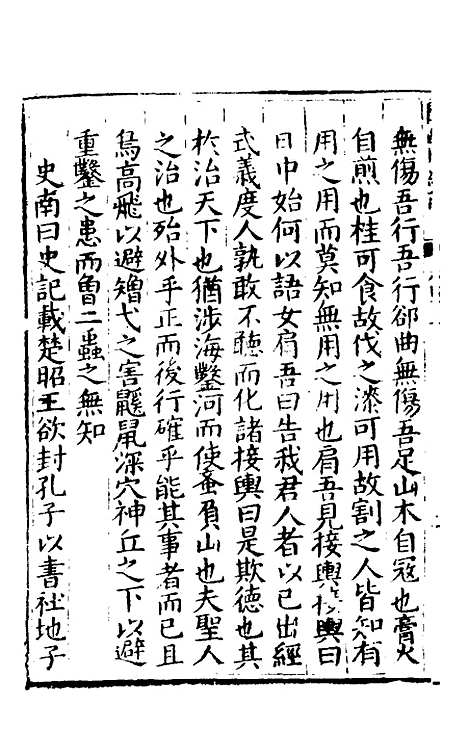 無傷吾行吾行郤曲無傷吾足山木自冦也膏火
自煎也桂可食故伐之漆可用故割之人皆知有
用之用而莫知無用之用也肩吾見接輿接輿曰
日中始何以語女肩吾曰告我君人者以已出經
式義度人孰敢不聽而化諸接輿曰是欺德也其
於治天下也猶涉海鑿河而使蚉負山也夫聖人
之治也殆外乎正而後行確乎能其事者而已且
鳥高飛以避矰弋之害鼷鼠深穴神丘之下以避
重鑿之患而曾二蟲之無知
史南曰史記載楚昭王欲封孔子以書社地子